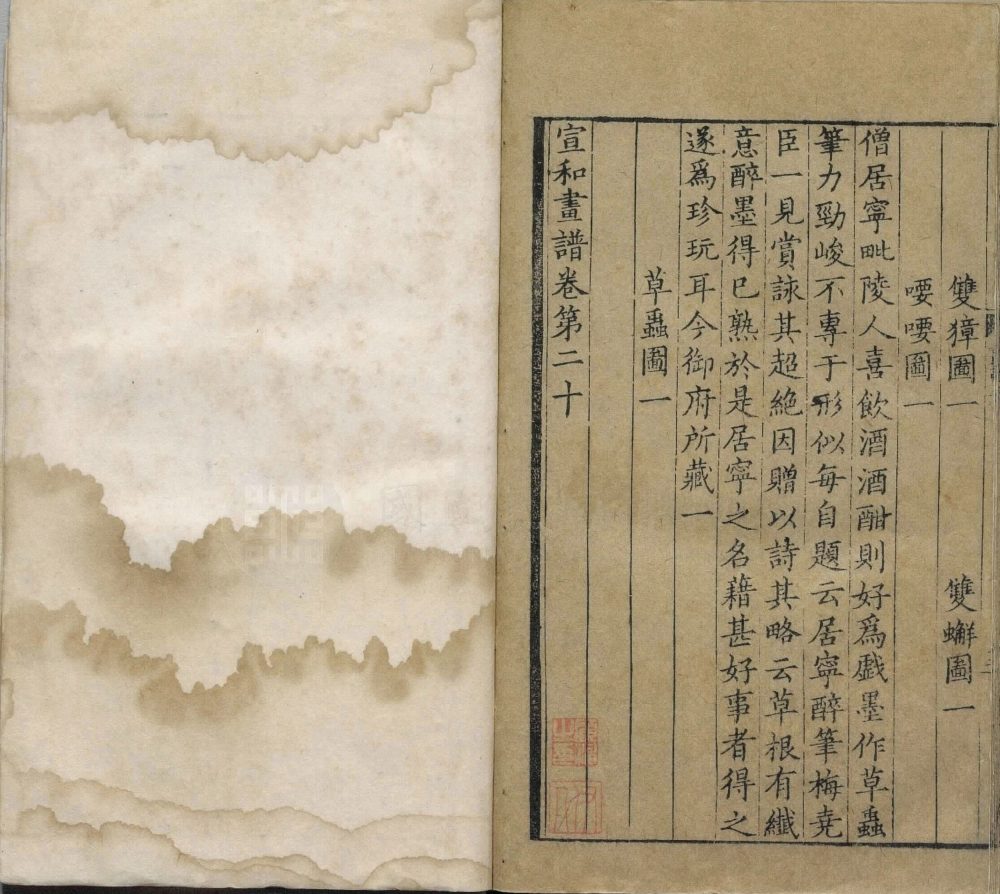 雙獐圖一 雙蠏圖一
喓喓圖一
僧居寧毗陵人喜飲酒酒酣則好爲戲墨作草蟲
筆力勁峻不專于形似每自題云居寧醉筆梅堯
臣一見賞詠其超絶因贈以詩其略云草根有纖
意醉墨得已熟於是居寧之名藉甚好事者得之
遂爲珍玩耳今御府所藏一
草蟲圖一
宣和畫譜卷第二十